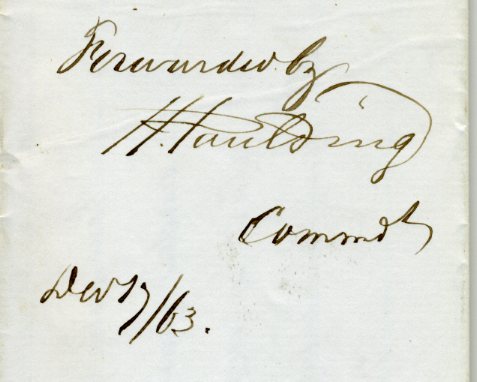 Forwarded by
H. Paulding
Commdt
Dec 17/63.